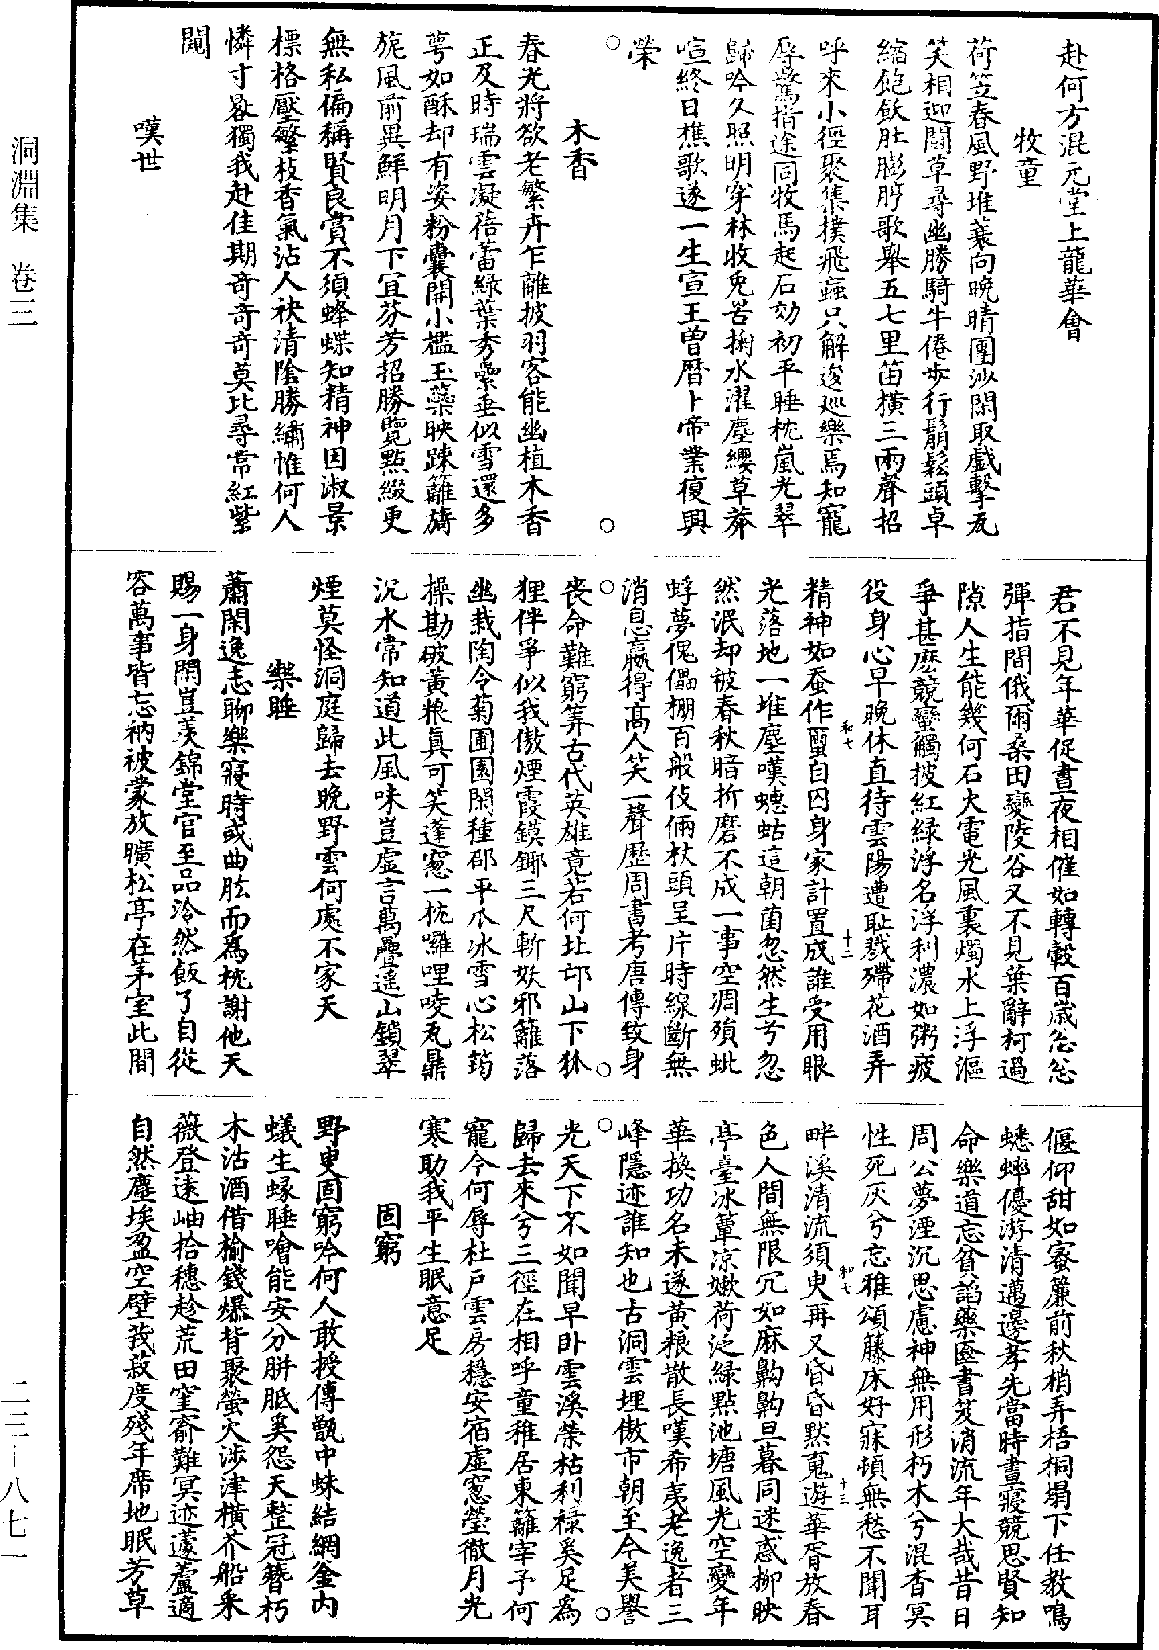 赴何方混元堂上龍華會
牧童
荷笠春風野堆蓑向晚晴團沙閑取戲擊瓦
笑相迎鬪草尋幽勝騎牛倦步行鬅鬆頭卓
縮飽飲肚膨脝歌舉五七里笛橫三兩聲招
呼來小徑聚集撲飛蟲只解逡巡樂焉知寵
辱驚指途同牧馬起石効初平睡枕嵐光翠
歸吟久照明穿林收兎罟掬水濯塵纓草莽
喧終日樵歌遂一生宣王曾曆卜帝業復興
榮
木香
春光將欲老繁卉乍離披羽客能幽植木香
正及時瑞雲凝蓓蕾綠葉秀纍垂似雪還多
萼如酥却有姿粉囊開小檻玉蘂映踈籬旖
旎風前異鮮明月下宜芬芳招勝覽點綴更
無私偏稱賢良賞不須蜂蝶知精神因淑景
標格壓繁枝香氣沾人袂清陰勝繡惟何人
憐寸晷獨我赴佳期奇奇奇莫比尋常紅紫
閫
嘆世
君不見年華促晝夜相催如轉轂百歲怱怱
彈指間俄爾桑田變陵谷又不見葉辭柯過
隙人生能幾何石火電光風裏燭水上浮漚
爭甚麽競蠻觸披紅綠浮名浮利濃如粥疲
役身心早晚休直待雲陽遭耻戮殢花酒弄
精神如蚕作蠒自囚身家計置成誰受用眼
光落地一堆塵嘆蟪蛄這朝菌忽然生兮忽
然泯却被春秋暗折磨不成一事空凋殞蚍
蜉夢傀儡棚百般伎倆杖頭呈片時線斷無
消息贏得高人笑一聲歷周書考唐傳致身
喪命難窮筭古代英雄竟若何北邙山下狐
狸伴爭似我傲煙霞鏌鎁三尺斬妖邪籬落
幽栽陶令菊園園閑種邵平瓜冰雪心松筠
操勘破黃粮真可笑蓬窓一枕囉哩唛瓦鼎
沉水常知道此風味豈虛言萬疊遥山鎖翠
煙莫怪洞庭歸去晚野雲何處不家天
樂睡
蕭閑逸志聊樂寢時或曲肱而爲枕謝他天
賜一身閑豈羡錦堂官至品泠然飯了自從
容萬事皆忘衲被蒙放曠松亭在茅室此間
偃仰甜如蜜簾前秋梢弄梧桐搨下任教鳴
蟋蟀優游清邁邊孝先當時晝寢競思賢知
命樂道忘貧謟藥匳書笈消流年大哉昔日
周公夢湮沉思慮神無用形朽木兮混杳冥
性死灰兮忘雅頌藤床好寐頓無愁不聞耳
畔溪清流須臾再又昏昏默嵬遊華胥放春
色人間無限冗如麻齁齁旦暮同迷惑柳映
亭臺冰蕈凉嫩荷泛綠點池塘風光空變年
華換功名未遂黃粮散長嘆希夷老逸者三
峰隱迹誰知也古洞雲埋傲市朝至今美譽
光天下不如聞早卧雲溪榮枯利祿奚足為
歸去來兮三徑在相呼童稚居東籬宰予何
寵今何辱杜戶雲房穩安宿虛窓瑩徹月光
寒助我平生眠意足
固窮
野叟固窮吟何人敢授傳甑中蛛結網釜内
蟻生緣睡噲能安分胼胝奚怨天整冠簪朽
木沽酒借榆錢爆背聚螢火涉津橫芥船采
薇登遠岫拾穗趁荒田窒窬難冥迹蘧蘆適
自然塵埃盈空壁莪菽度殘年席地眠芳草
洞淵集 卷三
二三—八七一